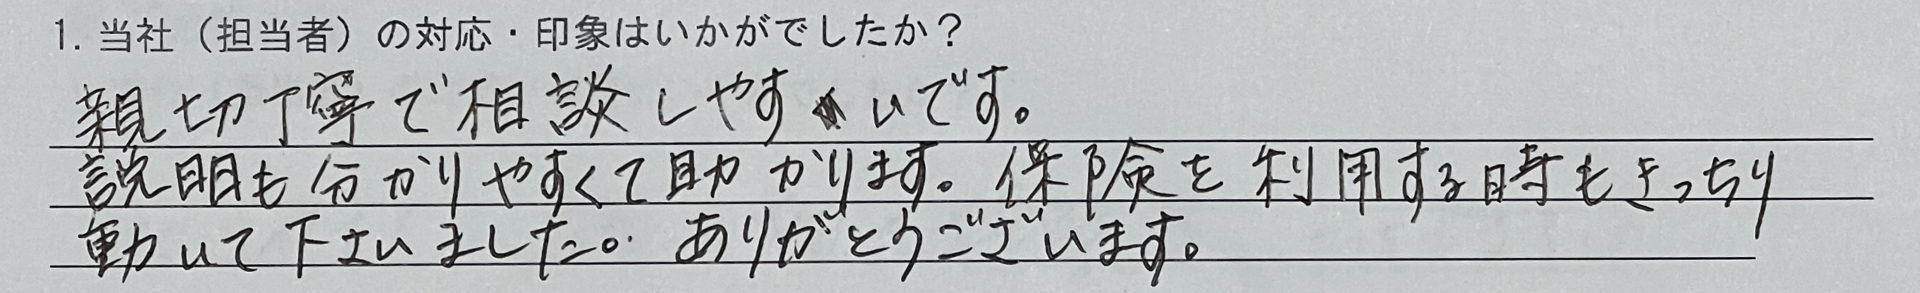 1. 当社（担当者）の対応・印象はいかがでしたか？
親切丁寧で相談しやすいです。
説明も分かりやすくて助かります。保険を利用する時もきっちり
動いて下さいました。ありがとうございます。